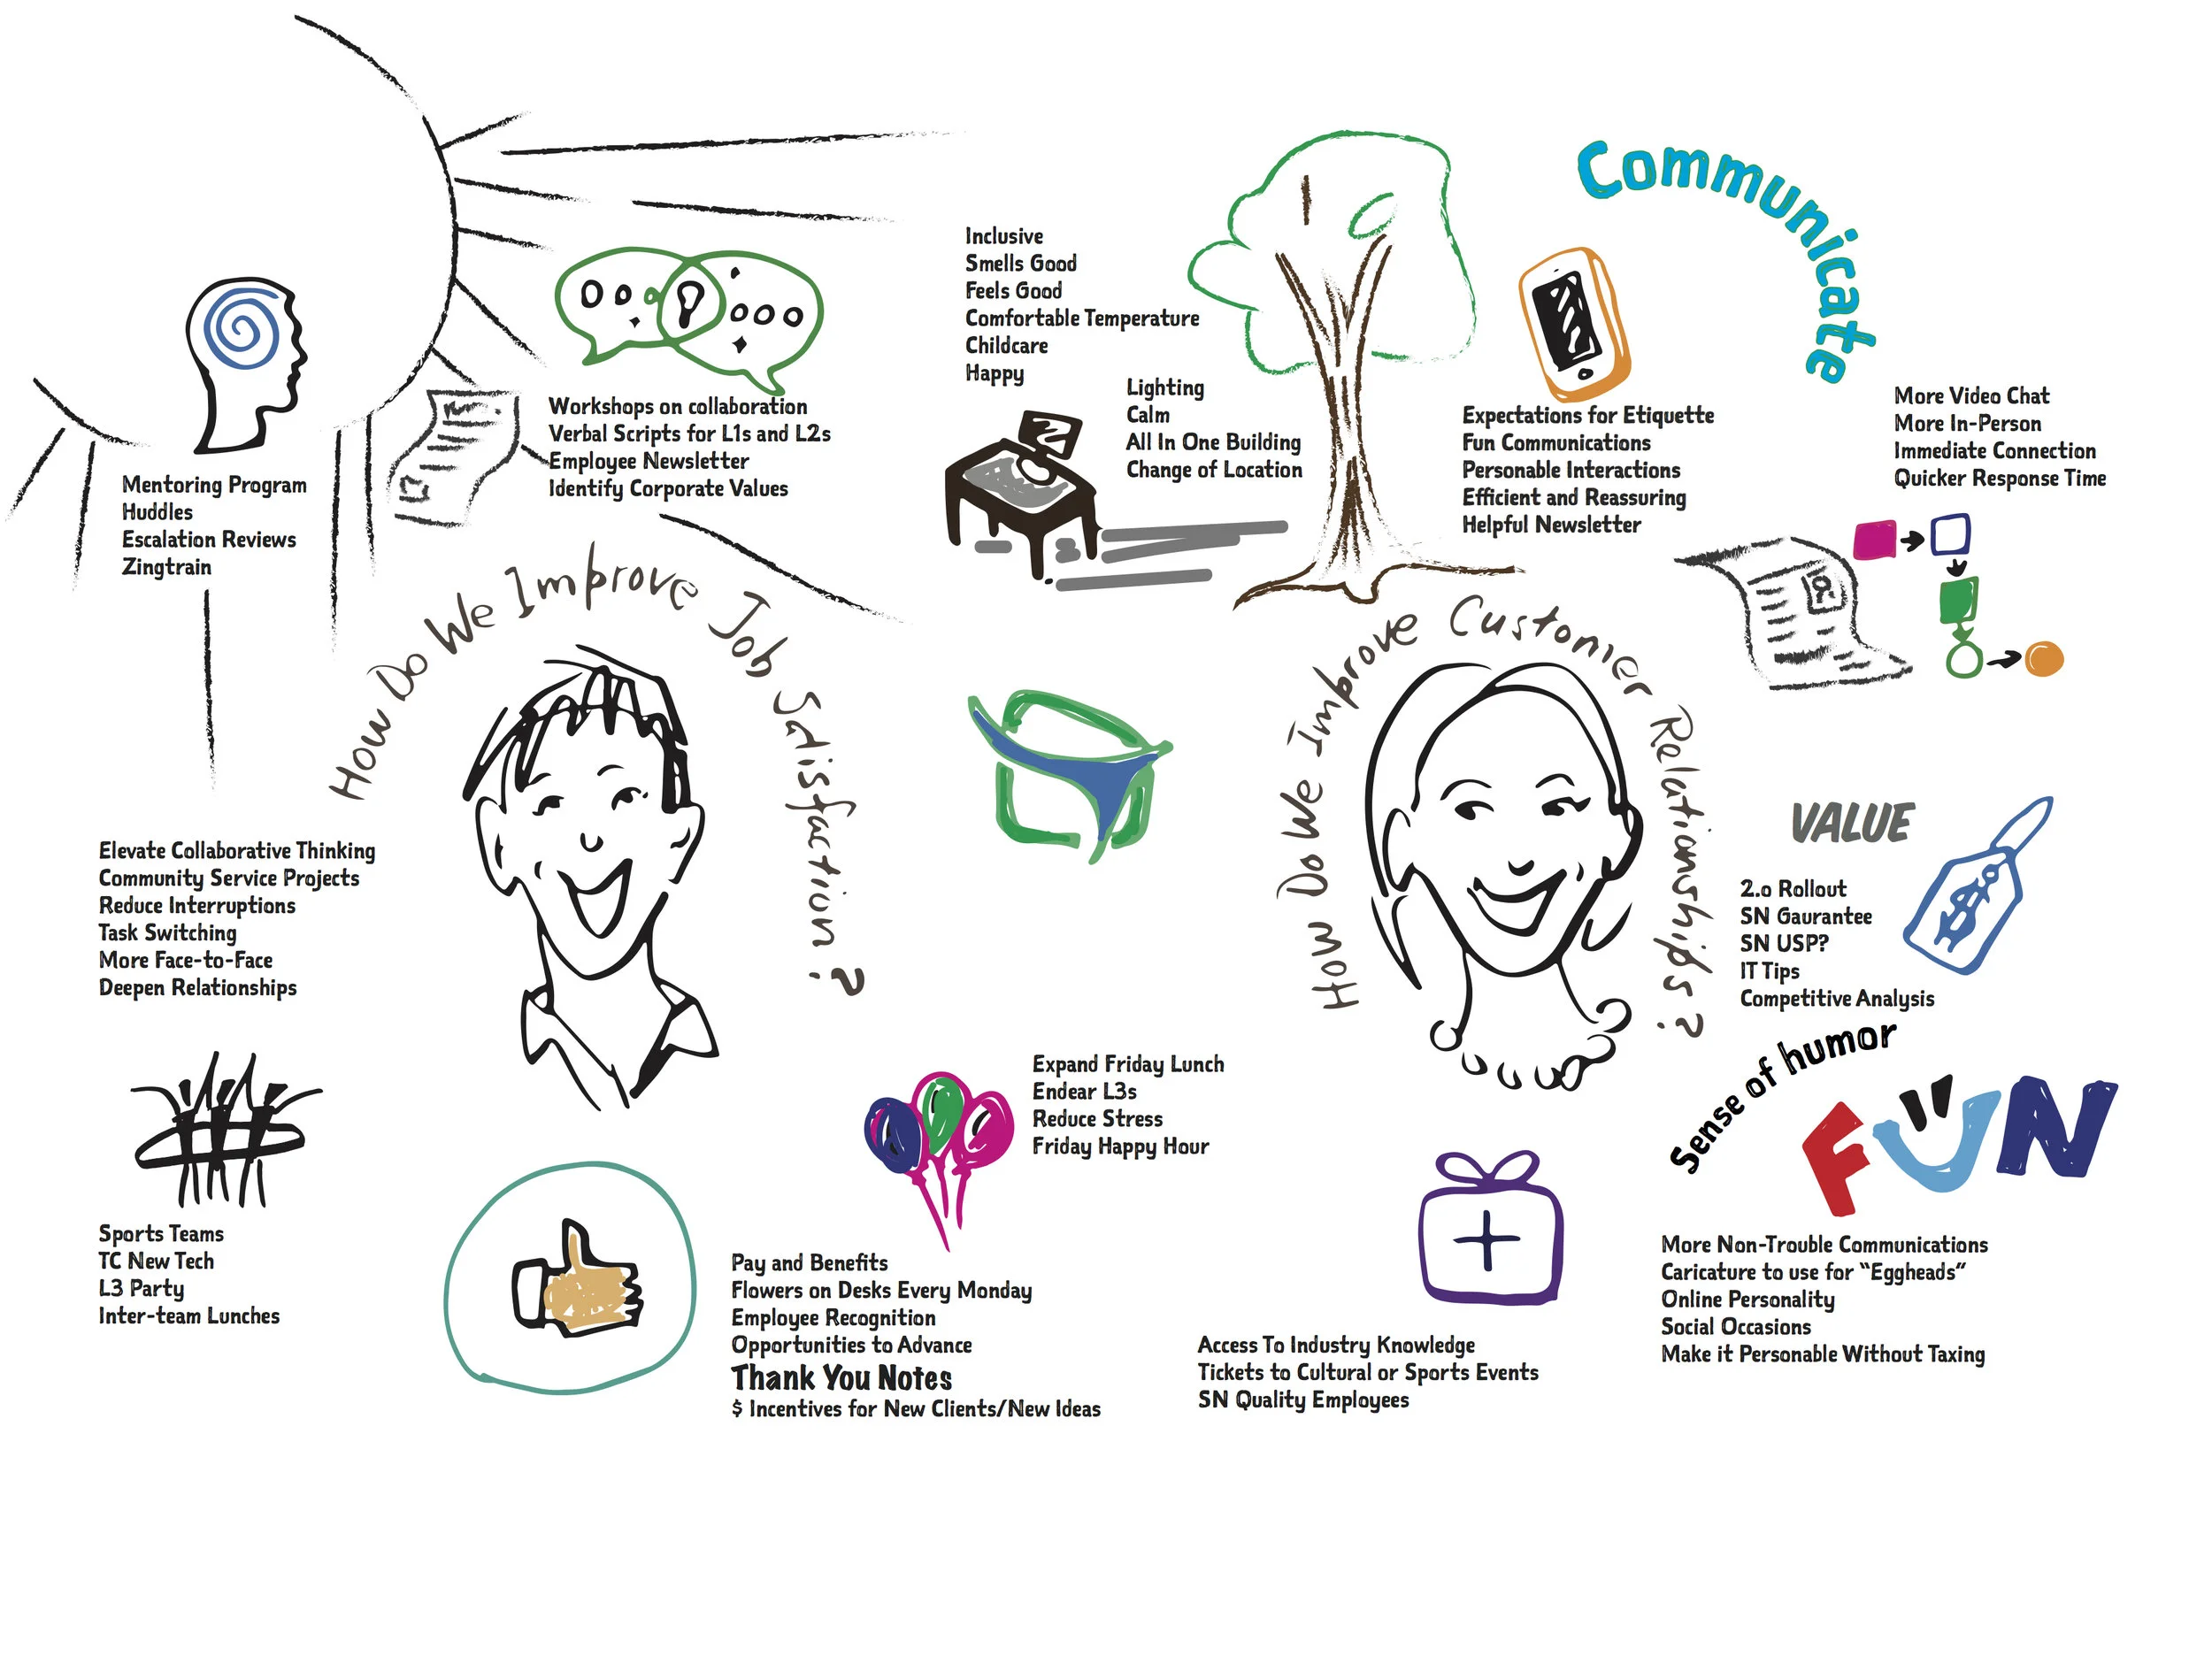 Communicate
Inclusive
Smells Good
Feels Good
Comfortable Temperature
Childcare
Happy
Lighting
Calm
All In One Building
Change of Location
Workshops on collaboration
Verbal Scripts for L1s and L2s
Employee Newsletter
Identify Corporate Values
Mentoring Program
Huddles
Escalation Reviews
Zingtrain
Expectations for Etiquette
Fun Communications
Personable Interactions
Efficient and Reassuring
Helpful Newsletter
More Video Chat
More In-Person
Immediate Connection
Quicker Response Time
How Do We Improve Job Satisfaction?
How Do We Improve Customer Relationships?
Elevate Collaborative Thinking
Community Service Projects
Reduce Interruptions
Task Switching
More Face-to-Face
Deepen Relationships
VALUE
$
2.o Rollout
SN Gaurantee
SN USP?
IT Tips
Competitive Analysis
Sense of humor
FUN
Expand Friday Lunch
Endear L3s
Reduce Stress
Friday Happy Hour
Sports Teams
TC New Tech
L3 Party
Inter-team Lunches
Pay and Benefits
Flowers on Desks Every Monday
Employee Recognition
Opportunities to Advance
Thank You Notes
$ Incentives for New Clients/New Ideas
Access To Industry Knowledge
Tickets to Cultural or Sports Events
SN Quality Employees
More Non-Trouble Communications
Caricature to use for “Eggheads”
Online Personality
Social Occasions
Make it Personable Without Taxing